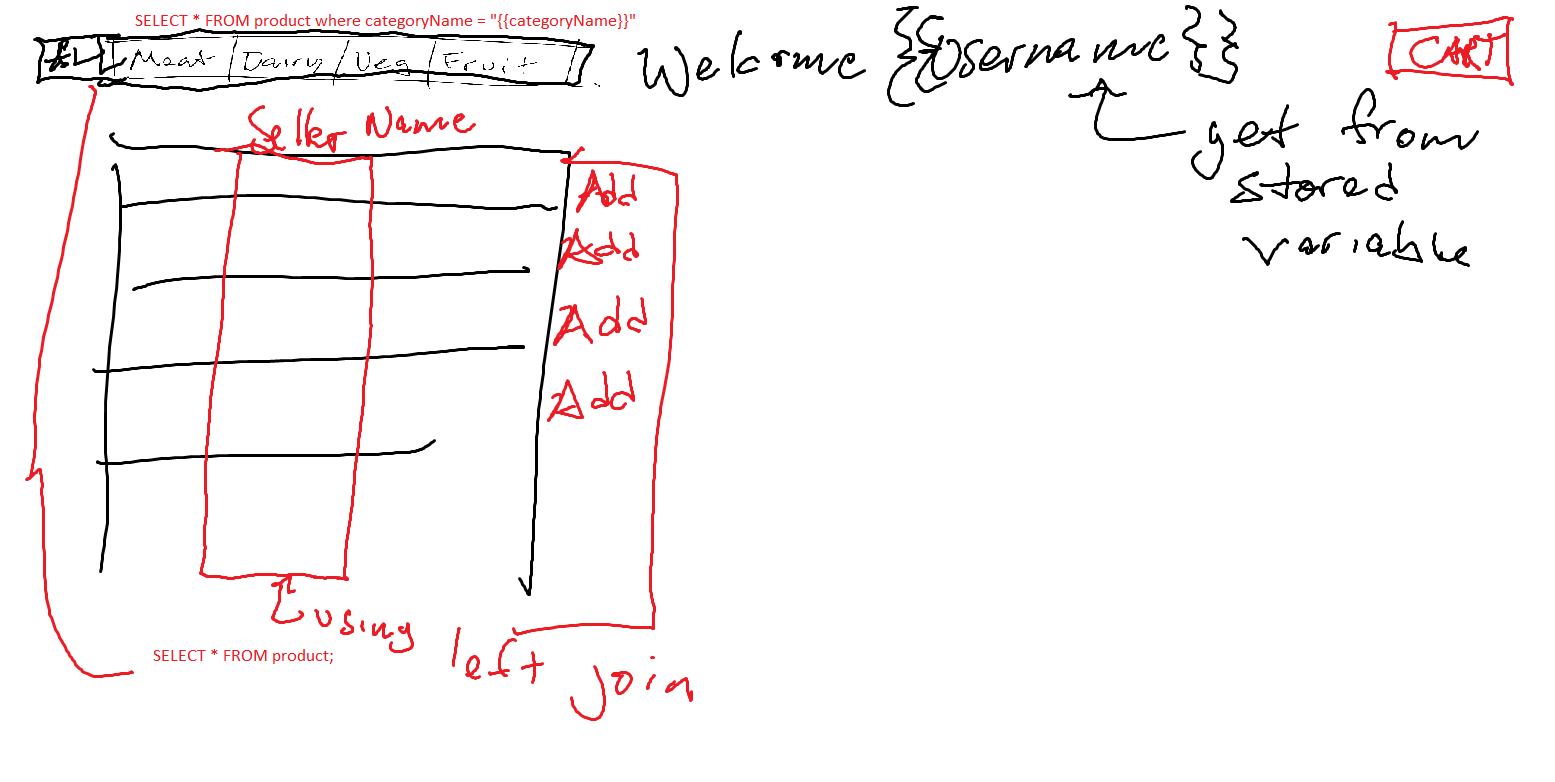 SELECT * FROM product where categoryName = "{{categoryName}}"
ALL Meat Dairy Veg Fruit
Welcome {{Username}}
CART
get from
stored
variable
Seller Name
Add
Add
Add
Add
using left join
SELECT * FROM product;